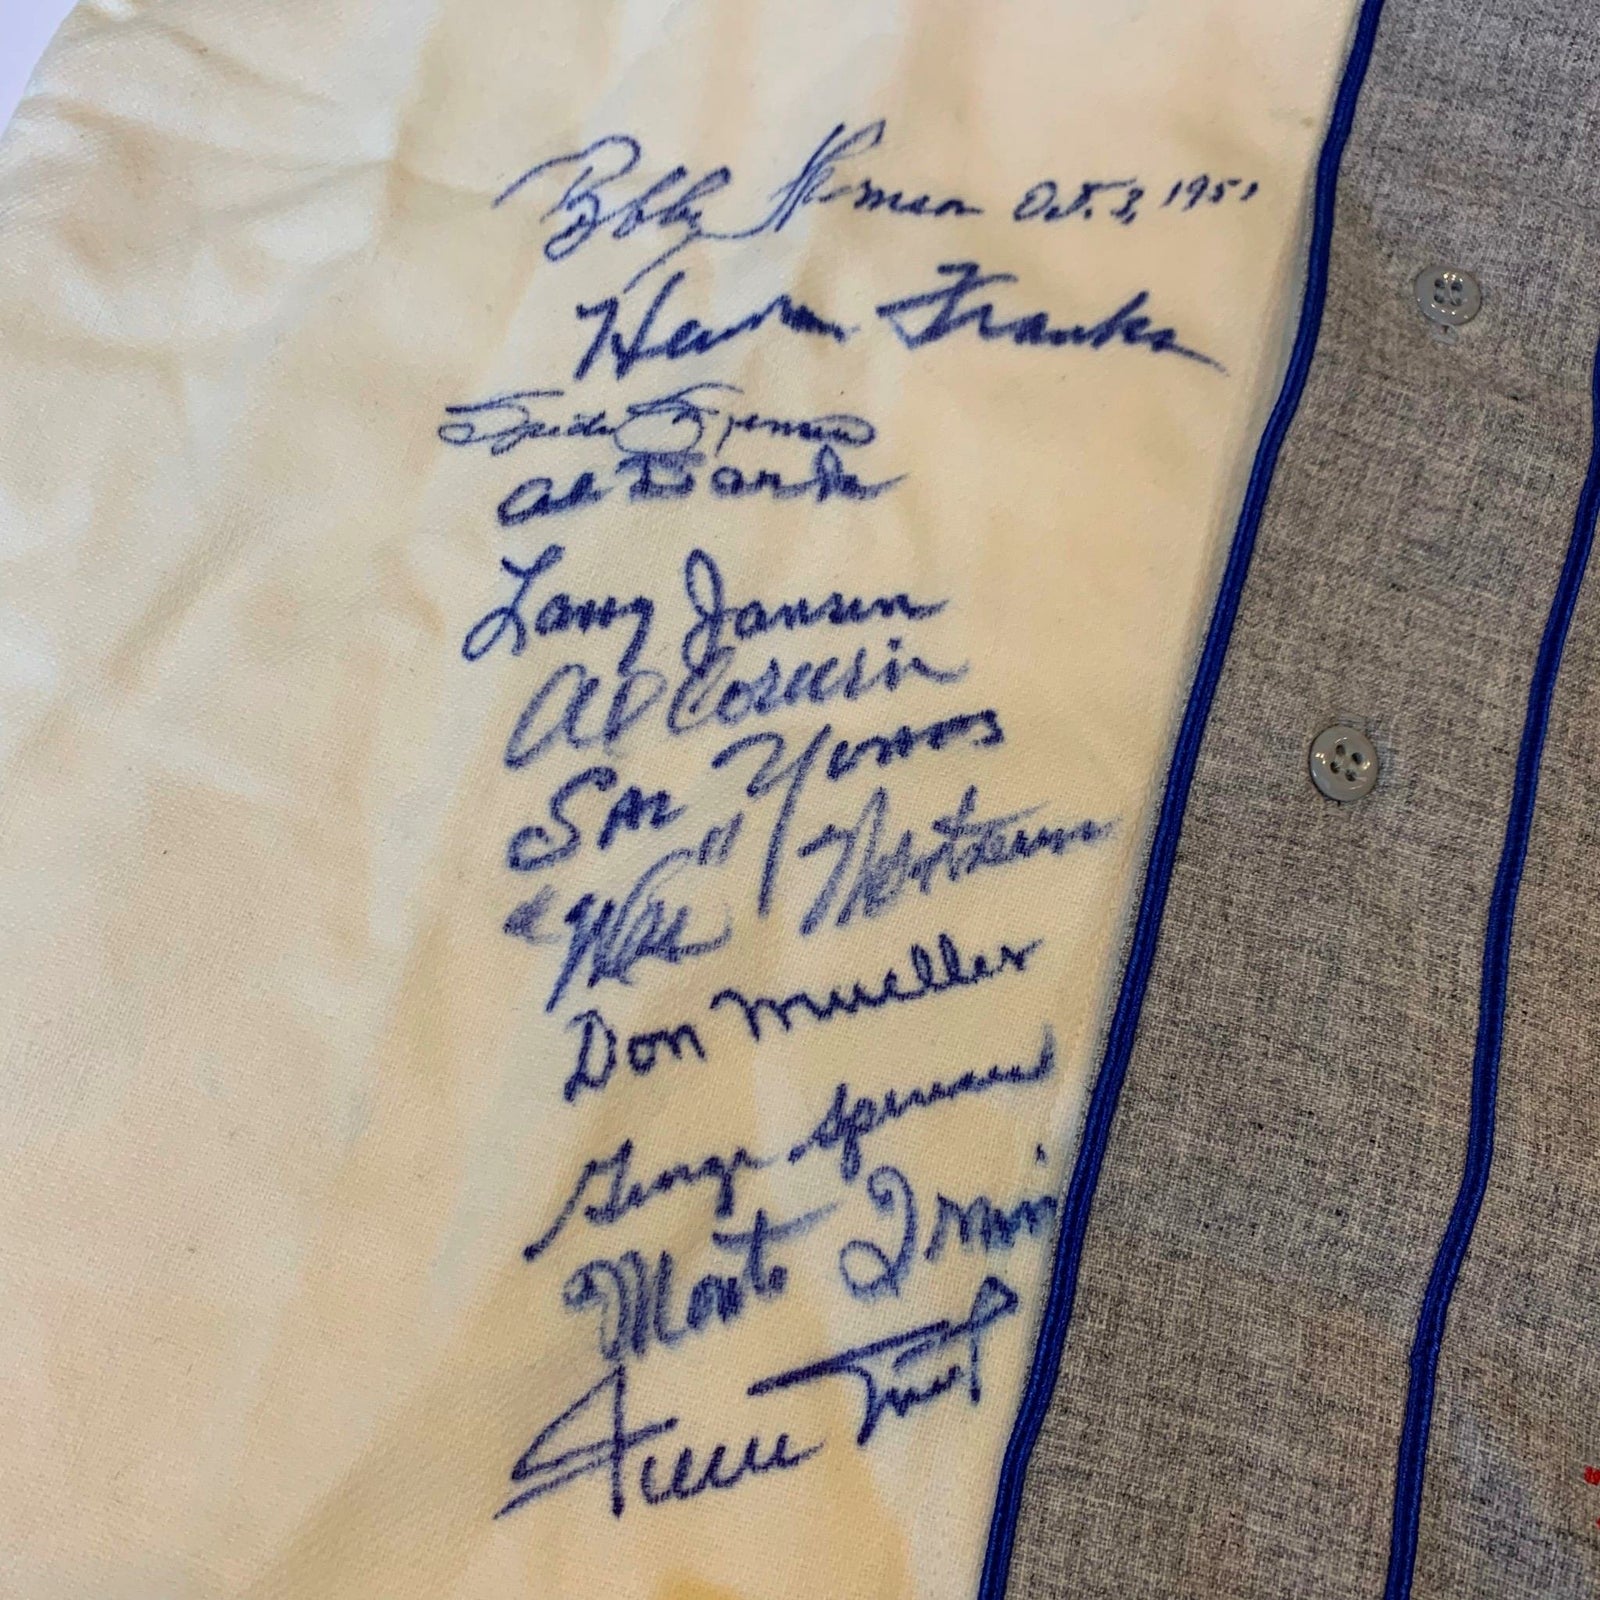 Bobby Thomson Oct. 3, 1951
Herman Franks
Spider Jorgensen
Al Dark
Larry Jansen
Al Corwin
Sal Yvars
"Wes" Westrum
Don Mueller
George Spencer
Monte Irvin
Willie Mays